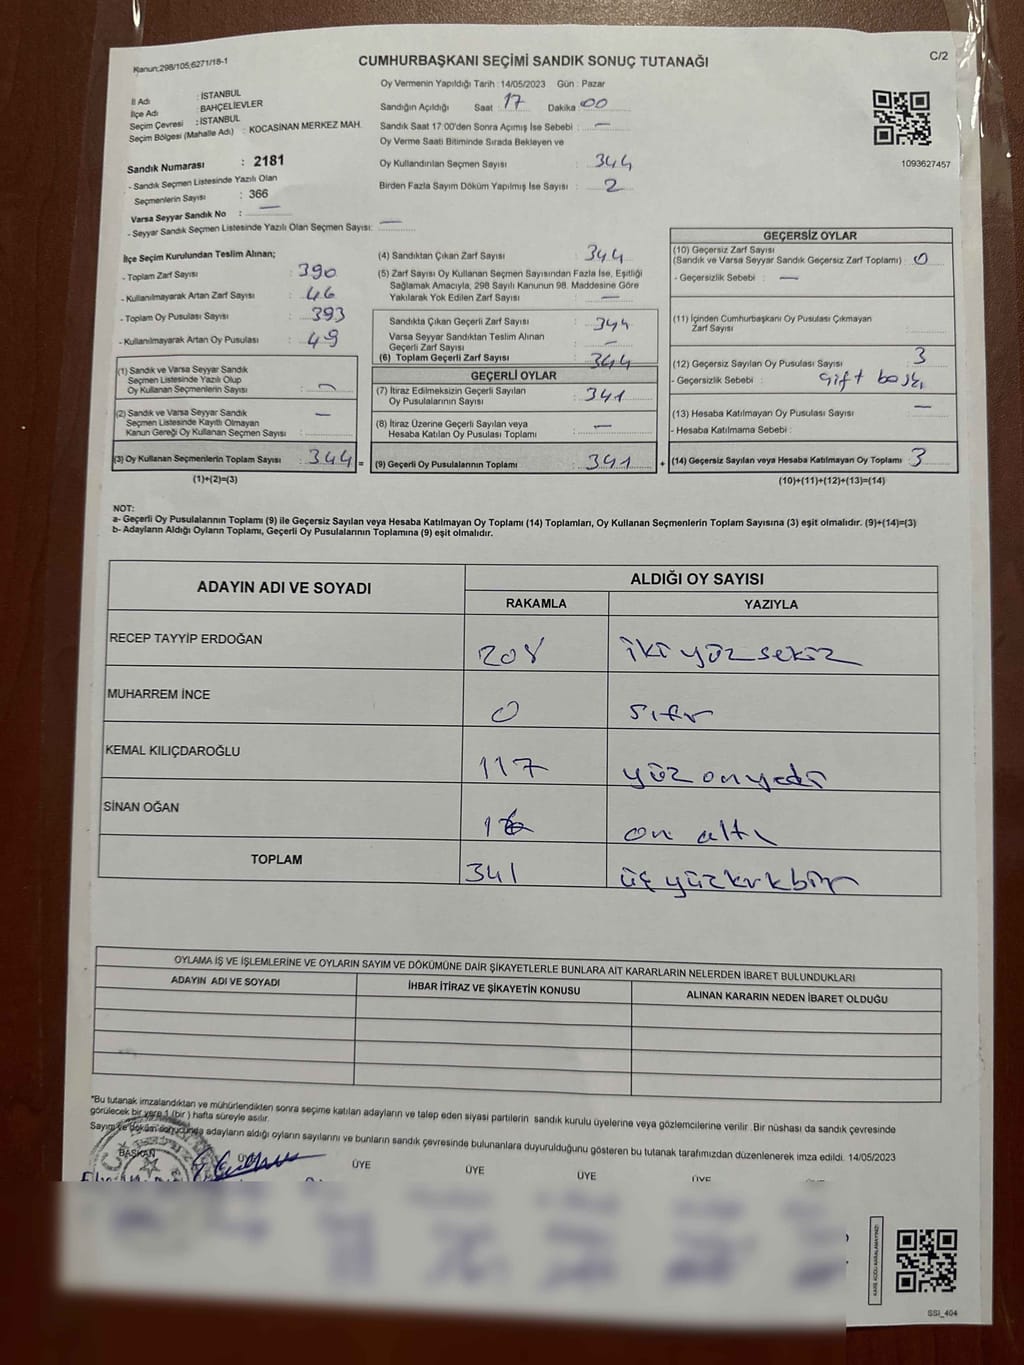 Kanun:298/105;6271/18-1
CUMHURBAŞKANI SEÇİMİ SANDIK SONUÇ TUTANAĞI
C/2
Oy Vermenin Yapıldığı Tarih : 14/05/2023 Gün : Pazar
İl Adı : İSTANBUL
İlçe Adı : BAHÇELİEVLER
Seçim Çevresi : İSTANBUL
Seçim Bölgesi (Mahalle Adı) : KOCASİNAN MERKEZ MAH.
Sandığın Açıldığı Saat : 17 Dakika : 00
Sandık Saat 17:00'den Sonra Açımış İse Sebebi : —
Oy Verme Saati Bitiminde Sırada Bekleyen ve
Oy Kullandırılan Seçmen Sayısı : 344
Birden Fazla Sayım Döküm Yapılmış İse Sayısı : 2
1093627457
Sandık Numarası : 2181
- Sandık Seçmen Listesinde Yazılı Olan
Seçmenlerin Sayısı : 366
Varsa Seyyar Sandık No : —
- Seyyar Sandık Seçmen Listesinde Yazılı Olan Seçmen Sayısı: —
İlçe Seçim Kurulundan Teslim Alınan;
- Toplam Zarf Sayısı : 390
- Kullanılmayarak Artan Zarf Sayısı : 46
- Toplam Oy Pusulası Sayısı : 393
- Kullanılmayarak Artan Oy Pusulası : 49
(1) Sandık ve Varsa Seyyar Sandık
Seçmen Listesinde Yazılı Olup
Oy Kullanan Seçmenlerin Sayısı :
(2) Sandık ve Varsa Seyyar Sandık
Seçmen Listesinde Kayıtlı Olmayan
Kanun Gereği Oy Kullanan Seçmen Sayısı : —
(3) Oy Kullanan Seçmenlerin Toplam Sayısı : 344 =
(1)+(2)=(3)
(4) Sandıktan Çıkan Zarf Sayısı : 344
(5) Zarf Sayısı Oy Kullanan Seçmen Sayısından Fazla İse, Eşitliği
Sağlamak Amacıyla, 298 Sayılı Kanunun 98. Maddesine Göre
Yakılarak Yok Edilen Zarf Sayısı : —
Sandıkta Çıkan Geçerli Zarf Sayısı : 344
Varsa Seyyar Sandıktan Teslim Alınan
Geçerli Zarf Sayısı : —
(6) Toplam Geçerli Zarf Sayısı : 344
GEÇERLİ OYLAR
(7) İtiraz Edilmeksizin Geçerli Sayılan
Oy Pusulalarının Sayısı : 341
(8) İtiraz Üzerine Geçerli Sayılan veya
Hesaba Katılan Oy Pusulası Toplamı : —
(9) Geçerli Oy Pusulalarının Toplamı : 341 +
GEÇERSİZ OYLAR
(10) Geçersiz Zarf Sayısı
(Sandık ve Varsa Seyyar Sandık Geçersiz Zarf Toplamı) : 0
- Geçersizlik Sebebi : —
(11) İçinden Cumhurbaşkanı Oy Pusulası Çıkmayan
Zarf Sayısı :
(12) Geçersiz Sayılan Oy Pusulası Sayısı : 3
- Geçersizlik Sebebi : Çift baskı
(13) Hesaba Katılmayan Oy Pusulası Sayısı : —
- Hesaba Katılmama Sebebi :
(14) Geçersiz Sayılan veya Hesaba Katılmayan Oy Toplamı : 3
(10)+(11)+(12)+(13)=(14)
NOT:
a- Geçerli Oy Pusulalarının Toplamı (9) ile Geçersiz Sayılan veya Hesaba Katılmayan Oy Toplamı (14) Toplamları, Oy Kullanan Seçmenlerin Toplam Sayısına (3) eşit olmalıdır. (9)+(14)=(3)
b- Adayların Aldığı Oyların Toplamı, Geçerli Oy Pusulalarının Toplamına (9) eşit olmalıdır.
ADAYIN ADI VE SOYADI
ALDIĞI OY SAYISI
RAKAMLA YAZIYLA
RECEP TAYYİP ERDOĞAN 208 iki yüz sekiz
MUHARREM İNCE 0 Sıfır
KEMAL KILIÇDAROĞLU 117 yüz on yedi
SİNAN OĞAN 16 on altı
TOPLAM 341 üç yüz kırk bir
OYLAMA İŞ VE İŞLEMLERİNE VE OYLARIN SAYIM VE DÖKÜMÜNE DAİR ŞİKAYETLERLE BUNLARA AİT KARARLARIN NELERDEN İBARET BULUNDUKLARI
ADAYIN ADI VE SOYADI İHBAR İTİRAZ VE ŞİKAYETİN KONUSU ALINAN KARARIN NEDEN İBARET OLDUĞU
*Bu tutanak imzalandıktan ve mühürlendikten sonra seçime katılan adayların ve talep eden siyasi partilerin sandık kurulu üyelerine veya gözlemcilerine verilir. Bir nüshası da sandık çevresinde
görülecek bir yere 1 (bir) hafta süreyle asılır.
Sayım ve döküm sonucunda adayların aldığı oyların sayılarını ve bunların sandık çevresinde bulunanlara duyurulduğunu gösteren bu tutanak tarafımızdan düzenlenerek imza edildi. 14/05/2023
BAŞKAN ÜYE ÜYE ÜYE ÜYE ÜYE
SSI_404